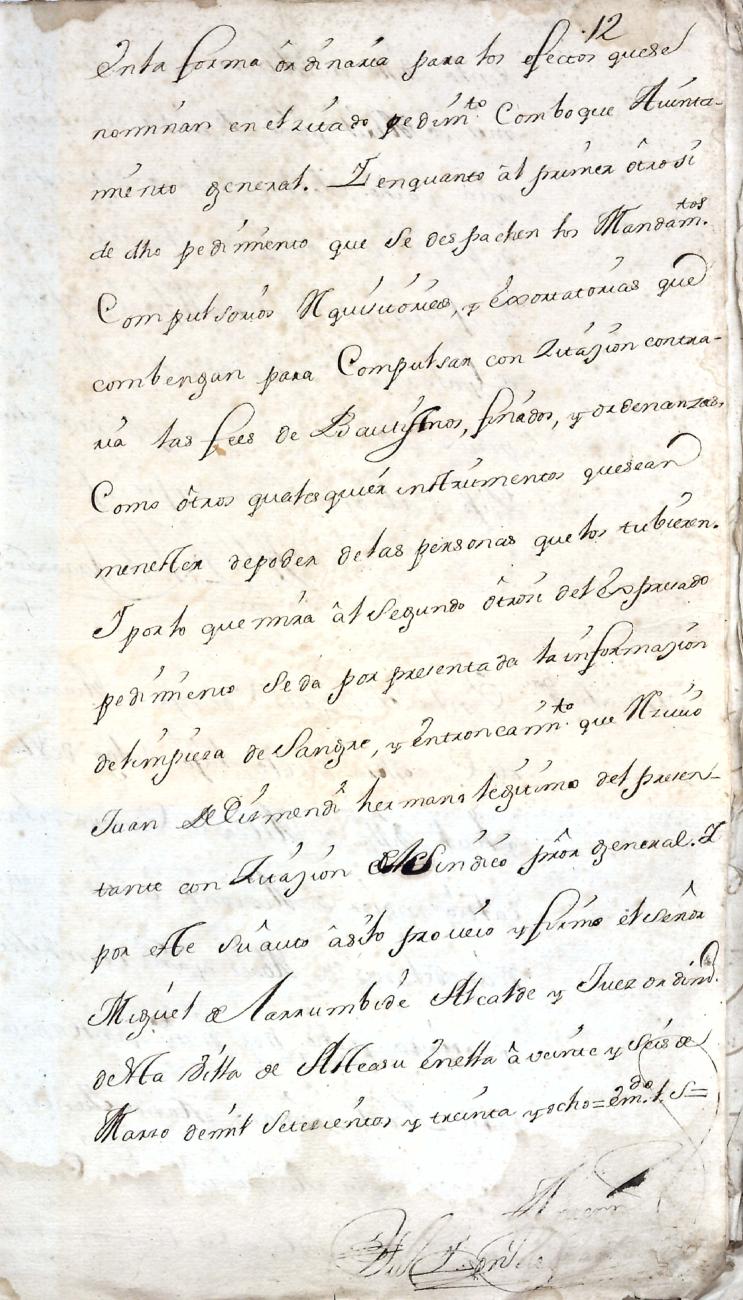 12
Enla forma ôrdinaria para los efectos quese
nominan en el zitado pedimto. Comboque Aiunta-
miento general. Y enquanto âl primer ôtrosi
de dho pedimiento que se despachen los Mandamtos.
Compulsorios Rquisitorias, y Exortatorias que
combengan para Compulsar con Zitazion contra-
ria las fees de Bautismos, finados, y ordenanzas,
Como ôtros qualesquier instrumentos quesean
menester depoder delas personas que los tubieren.
Y porlo que mira âl Segundo ôtrosi del Expresado
pedimiento seda por presentada la informazion
delimpieza de Sangre, y entroncamto. que Rziuio
Juan de Lismendi hermano legitimo del presen-
tante con Zitazion del Sindico prôr general. Y
por este su âuto âsilo proueio y firmo el señor
Miguel de Larrumbide Alcalde y Juez ordino.
desta Villa de Asteasu Enella â veinte y seis de
Marzo demil setezientos y treinta y ocho=emdo. l. s=